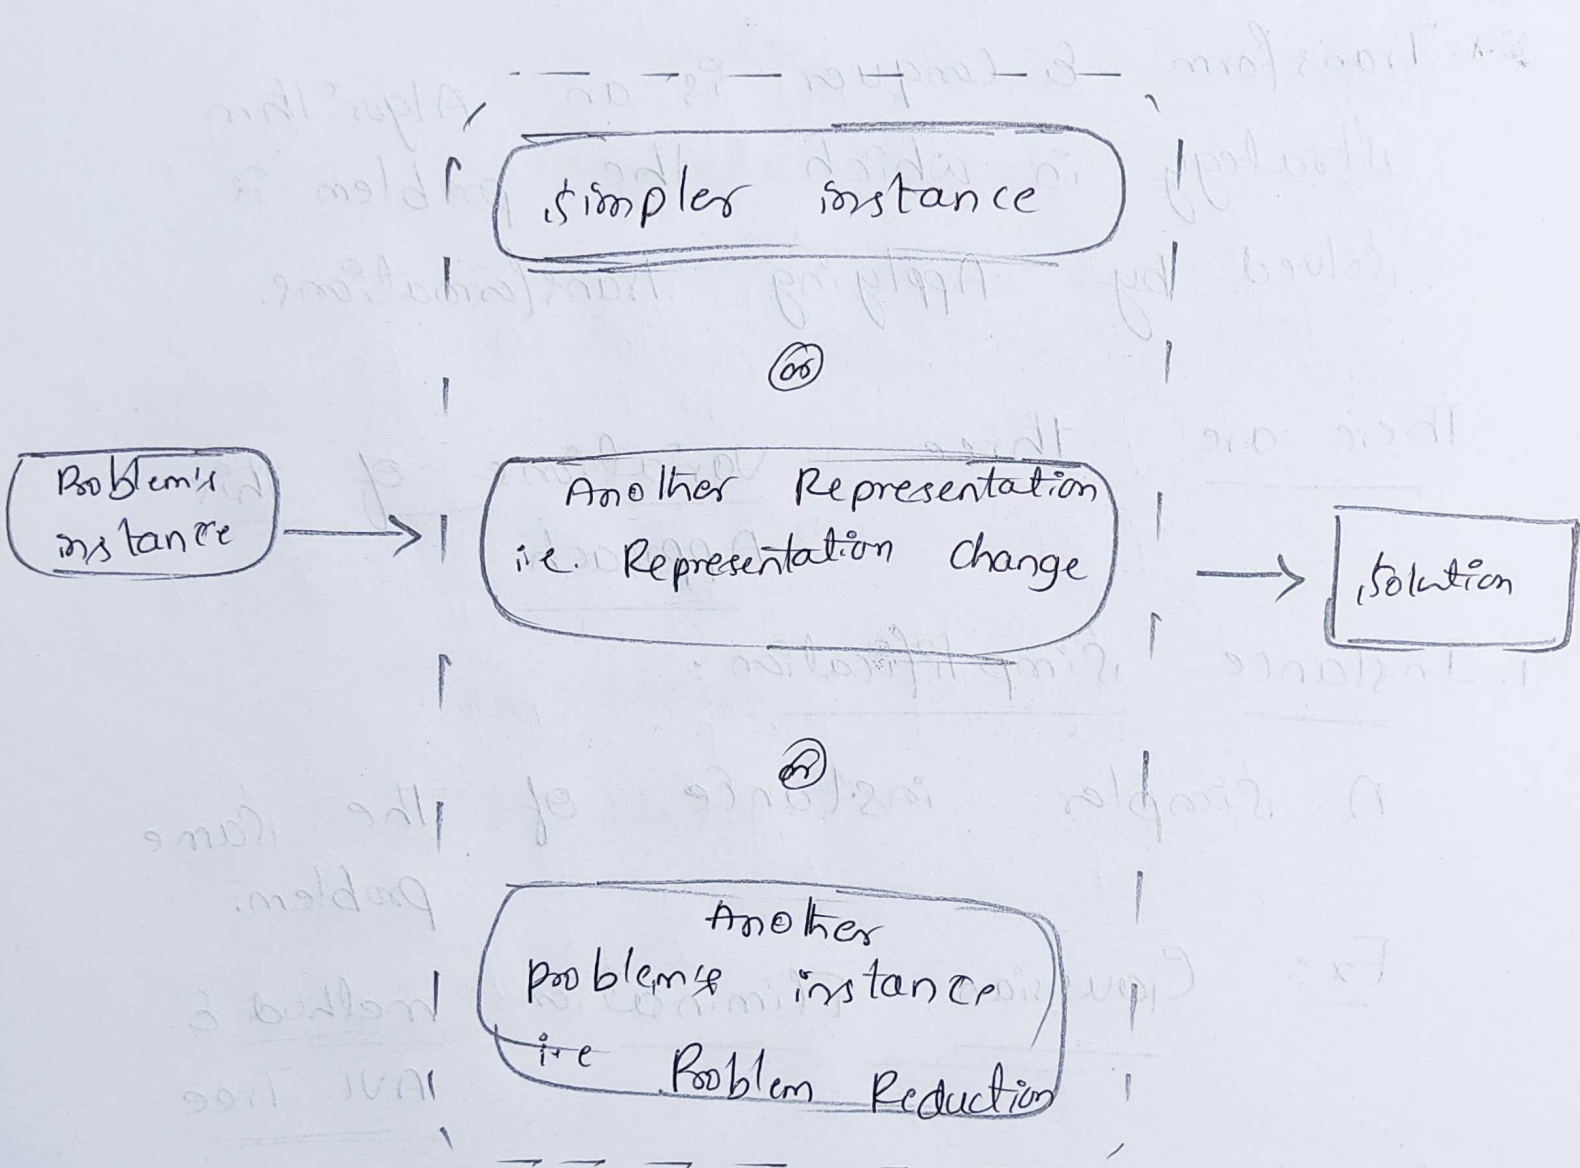 simpler instance
or
Problem's
instance
Another Representation
i.e. Representation change
Solution
or
Another
problem's instance
i.e Problem Reduction